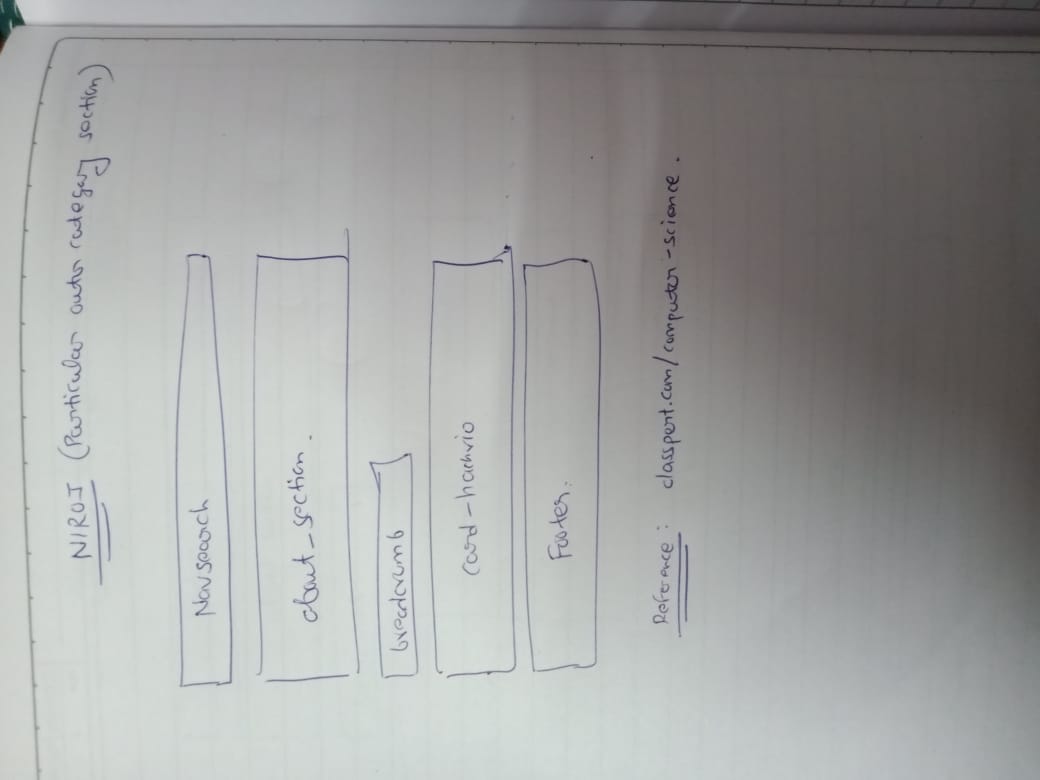 NIROJ (Particular outer category section)
Navsearch
about_section.
breadcrumb
Footer.
Reference: classpert.com/computer-science.